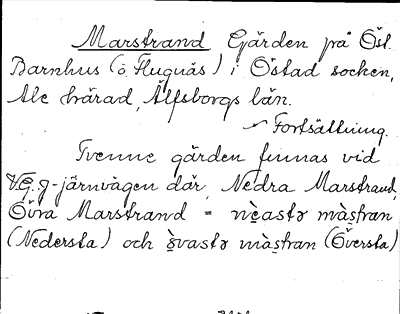 Marstrand Gärden på Östl.
Barnhus (ö. Flugnäs) i Östad socken,
Ale härad, Älfsborgs län.
Fortsättning.
Tvenne gärden finnas vid
V.G.g-järnvägen där, Nedra Marstrand,
Övra Marstrand = nèastə màstran
(Nedersta) och ǿvastə màstran (Översta)